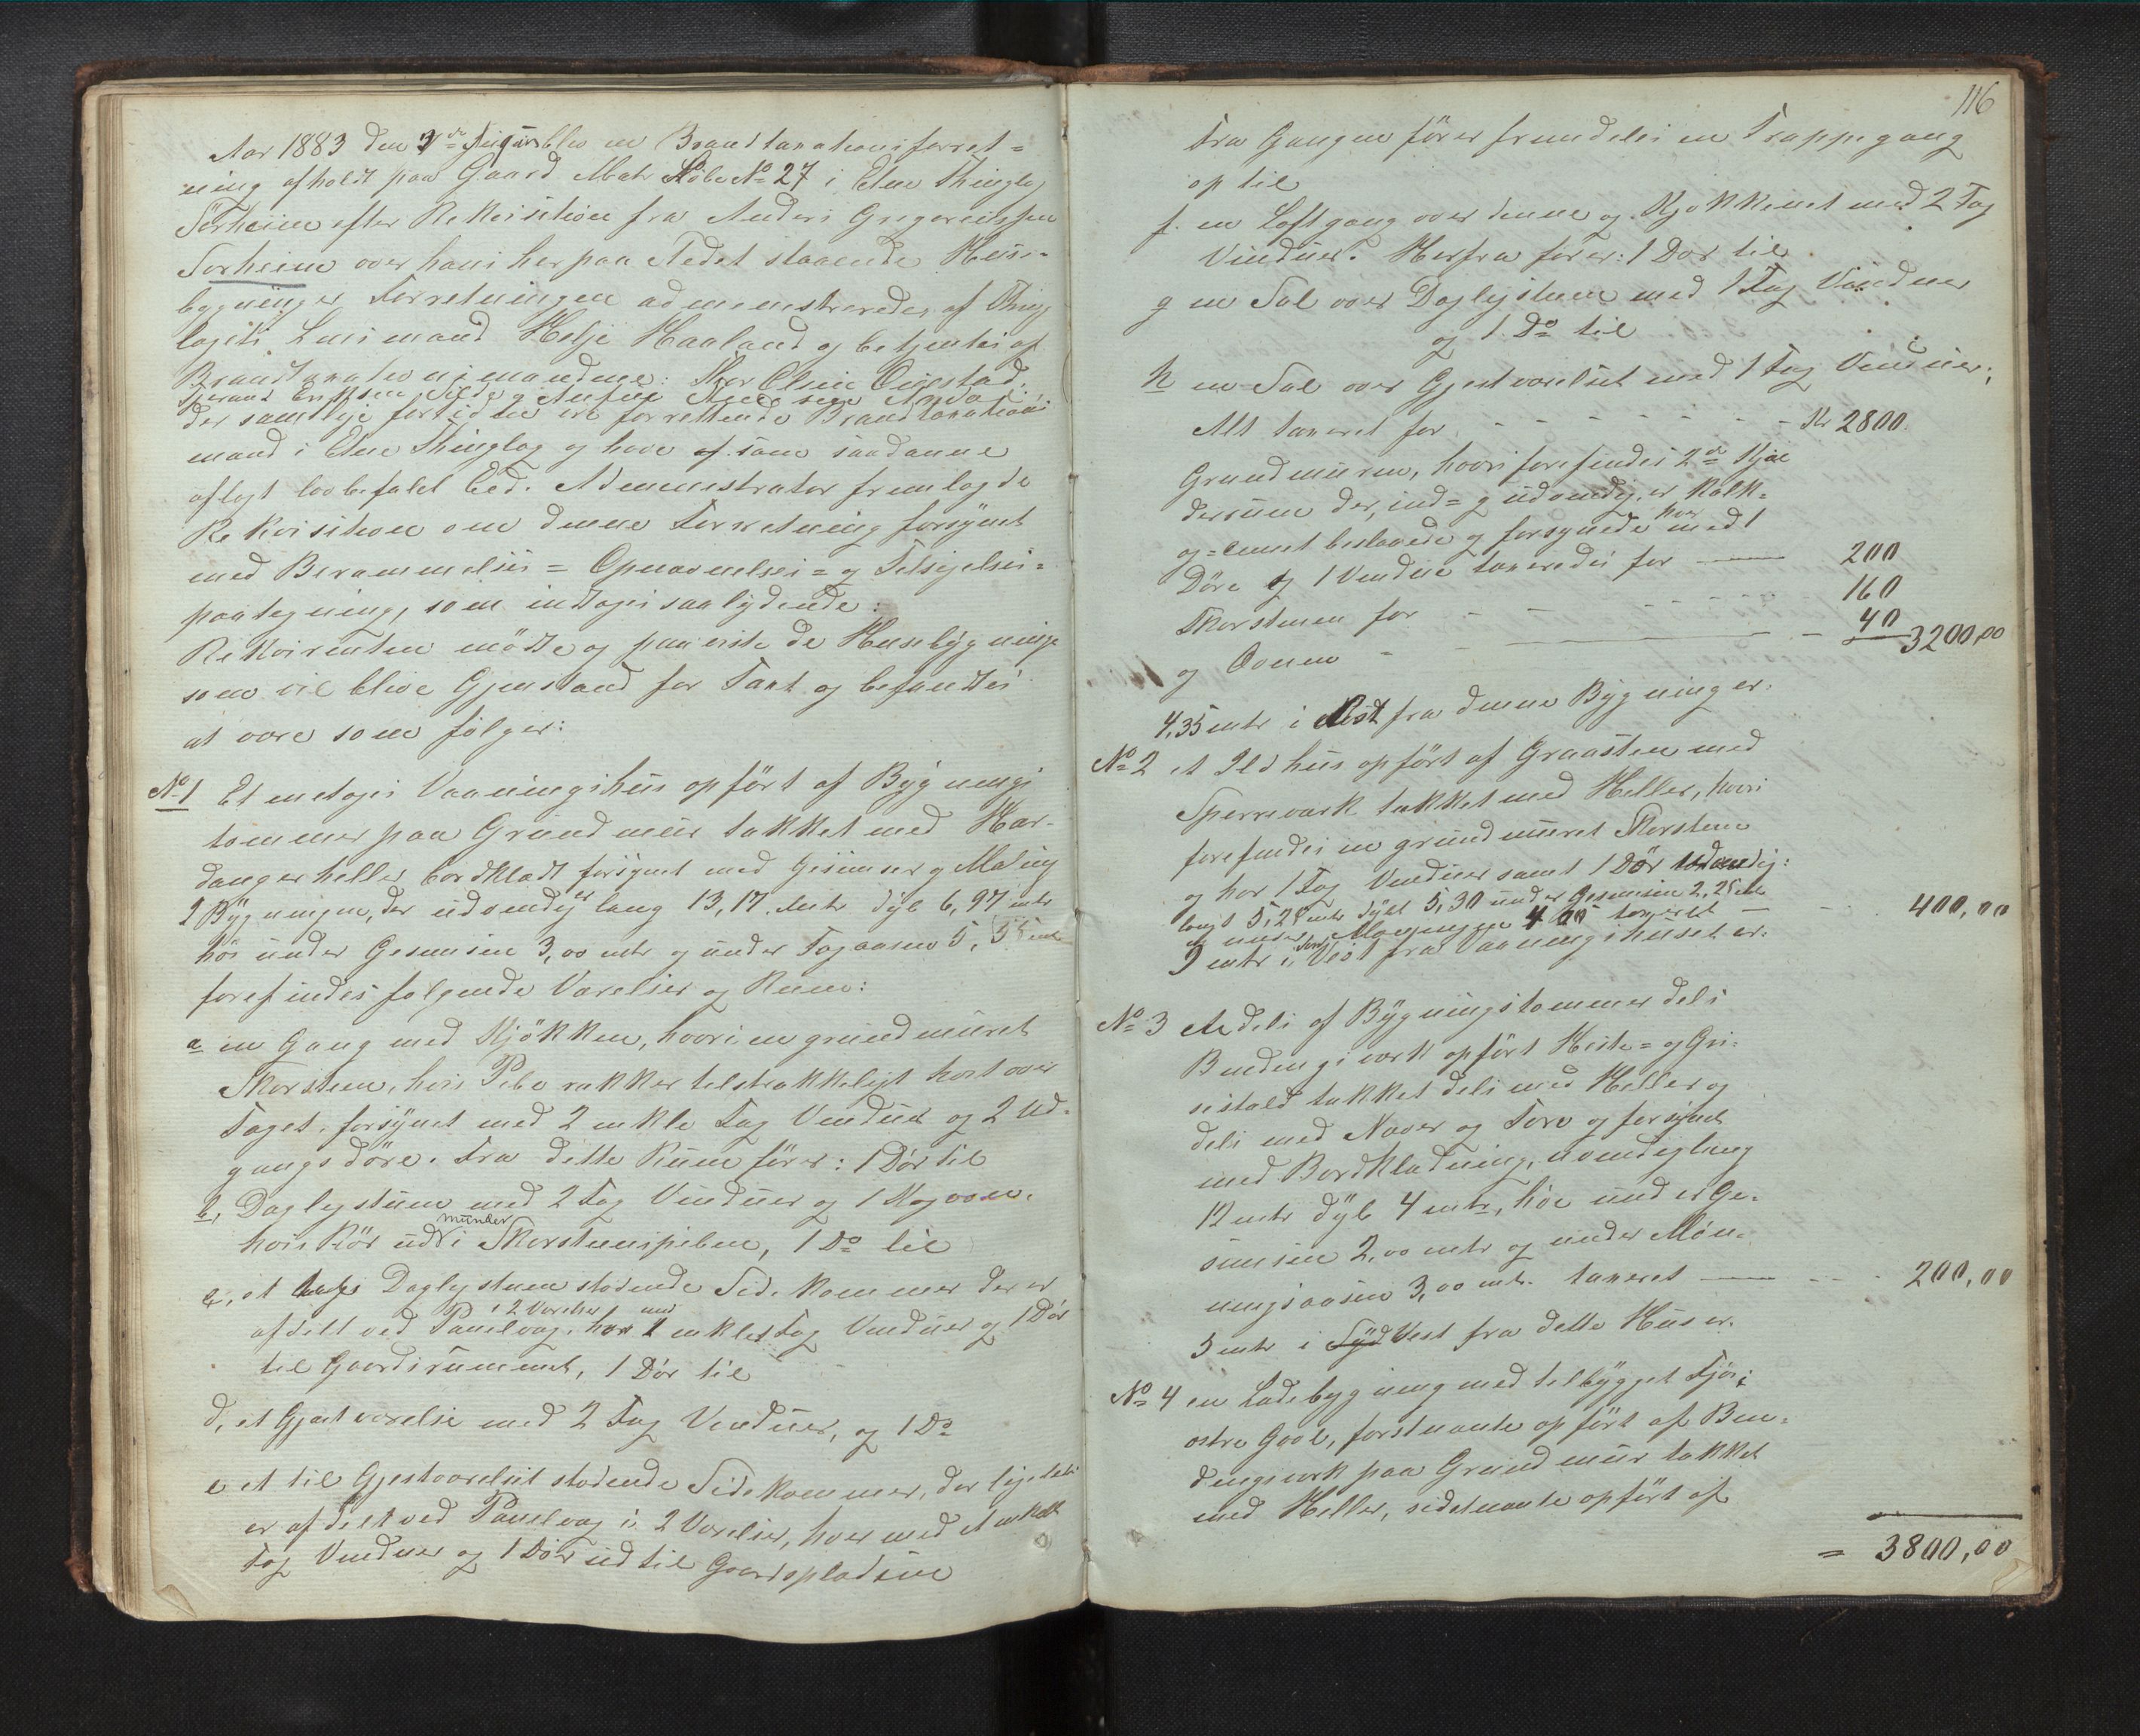 Aar 1883 den 3de August blev en Brandtaxationsforret=
ning afholdt paa Gaard Matr Løbe No 27 i Etne Thinglag
Sørheim efter Rekvisition fra Anders Gregoriussen
Sørheim over hans her paa Stedet staaende Huse-
bygninger. Forretningen administreredes af Thing
lagets Lensmand Helje Haaland og betjentes af
Brandtaxationsmændene: Thor Olsen Øigestad,
Eriksen og
der samtlige fortiden ere forrettende Brandtaxations
mænd i Etne Thinglag og have af som saadanne
aflagt lovbefalet Eed. Administrator fremlagde
Rekvisition om denne Forretning forsynet
med Berammelses= Opnævnelses= og Tilsigelses=
paategning, som indtages saalydende:
Rekvirenten mødte og paaviste de Husebygninge
som vil blive Gjenstand for Taxt og befandtes
at være som følger:
No 1 Et enetages Vaaningshus opført af Bygnings
tømmer paa Grundmur takket med Har-
dangerheller bordklædt forsynet med Gesimser og Maling
2 Bygningen, der udvendig er lang 13,17 Mtr dyb 6,97 mtr
høi under Gesimsen 3,00 mtr og under Tagaasen 5,55 mtr
forefindes følgende Værelser og Rum:
a en Gang med Kjøkken, hvori en grundmuret
Skorsten, hvis Pibe rækker tilstrækkeligt høit over
Taget, forsynet med 2 enkle Fag Vinduer og 2 Ud-
gangsdøre. Fra dette Rum fører: 1 Dør til
b, Dagligstuen med 2 Fag Vinduer og 1 Kogovn.
hvis Rør udmunder i Skorstenspiben, 1 Do til
c, et Dagligstuen stødende Sidekammer der er
afdelt ved Panelvæg i 2 Værelser, har med 1 enkles Fag Vinduer og 1 Dør
til Gaardsrummet, 1 Dør til
d, et Gjæstværelse med 2 Fag Vinduer, og 1 Do
e et til Gjestværelset stødende Sidekammer, der ligeledes
er afdelt ved Panelvæg i 2 Værelser, hver med et enkelt
Fag Vinduer og 1 Dør ud til Gaardspladsen
116
Fra Gangen fører fremdeles en Trappegang
op til
f. en Loftgang over denne og Kjøkkenet med 2 Fag
Vinduer. Herfra fører: 1 Dør til
g en Sal over Dagligstuen med 1 Fag Vinduer
og 1 Do til
h en Sal over Gjestværelset med 1 Fag Vinduer;
Alt taxeret for - - - - - - Kr 2800.
Grundmuren, hvori forefindes 2de Kjæl
derrum der, ind= og udvendig, er kalk=
og =cement beslaaede og forsynede hver med 1
Døre og 1 Vindue taxeredes for — 200
Skorstenen for - - - - 160
og Ovnen - - - 40 3200,00
4,35 mtr i Øst fra denne Bygning er:
No 2 et Ildhus opført af Graasten med
Sperreværk takket med Heller, hvori
forefindes en grundmuret Skorsten
og har 1 Fag Vinduer samt 1 Dør udvendig:
langt 5,28 mtr dybt 5,30 under Gesimsen 2,25 mtr
og under Mønningen 4,05 taxeret — 400,00
9 mtr i Vest fra Vaaningshuset er:
No 3 Et dels af Bygningstømmer dels
Bindingsværk opført Heste= og Gri-
sestald takket dels med Heller og
dels med Næver og Torv og forsynet
med Bordklædning, udvendig lang
12 mtr dyb 4 mtr, høi under Ge-
simsen 2,00 mtr og under Møn-
ningsaasen 3,00 mtr. taxeret — 200,00
5 mtr i Syd Vest fra dette Hus er.
No 4 en Ladebygning med tilbygget Fjøs;
østre Gavl, førstnævnte opført af Bin-
dingsverk paa Grundmur takket
med Heller, sidstnævnte opført af
= 3800,00